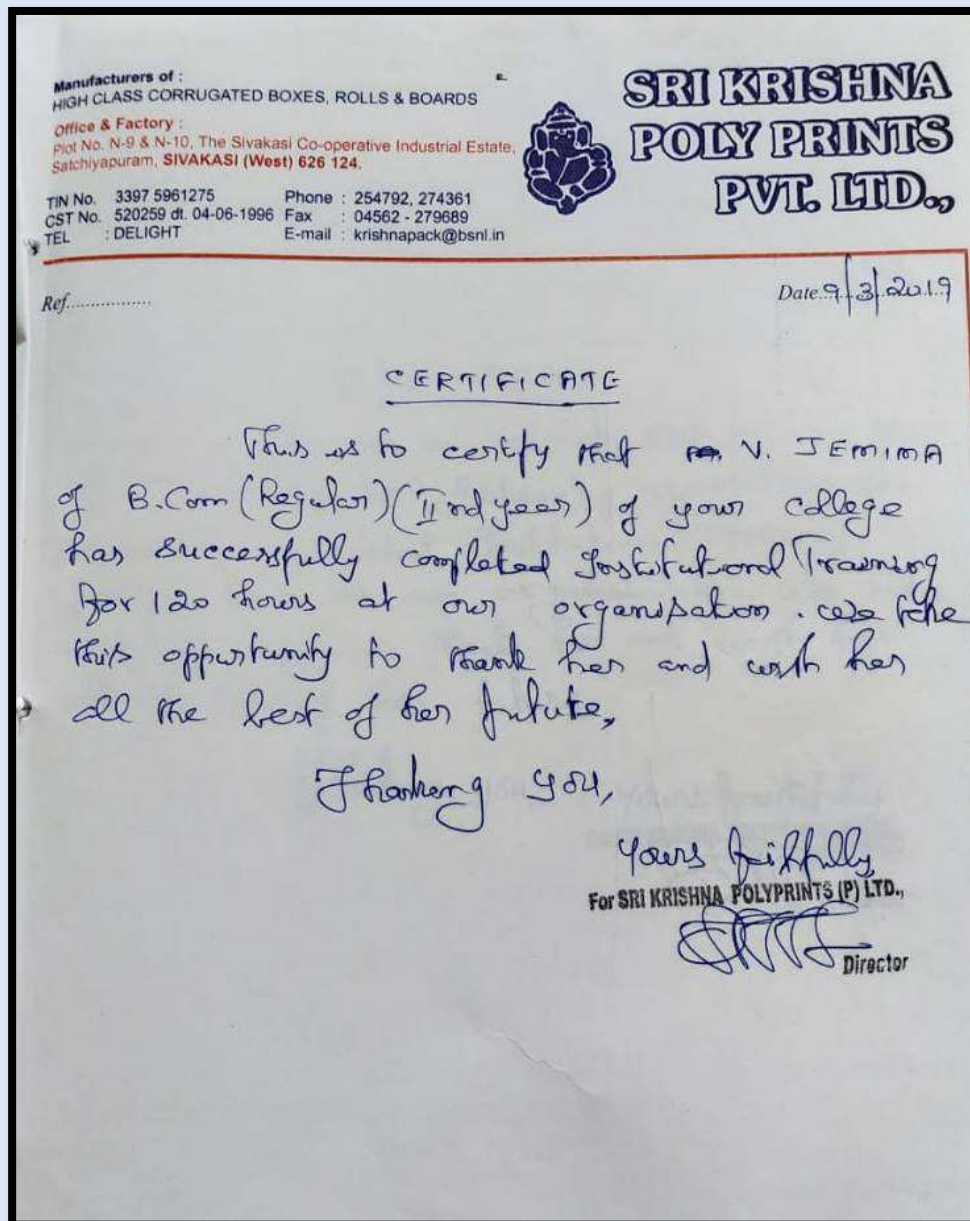 Manufacturers of :
HIGH CLASS CORRUGATED BOXES, ROLLS & BOARDS
Office & Factory :
Plot No. N-9 & N-10, The Sivakasi Co-operative Industrial Estate,
Satchiyapuram, SIVAKASI (West) 626 124.
TIN No. 3397 5961275 Phone : 254792, 274361
CST No. 520259 dt. 04-06-1996 Fax : 04562 - 279689
TEL : DELIGHT E-mail : krishnapack@bsnl.in
SRI KRISHNA
POLY PRINTS
PVT. LTD.,
Ref................
Date 9/3/2019
CERTIFICATE
This is to certify that V. JEMIMA
of B.Com (Regular) (II nd year) of your college
has successfully completed Institutional Training
for 120 hours at our organisation. we take
this oppurtunity to thank her and wish her
all the best of her future,
Thanking you,
Yours faithfully,
For SRI KRISHNA POLYPRINTS (P) LTD.,
Director